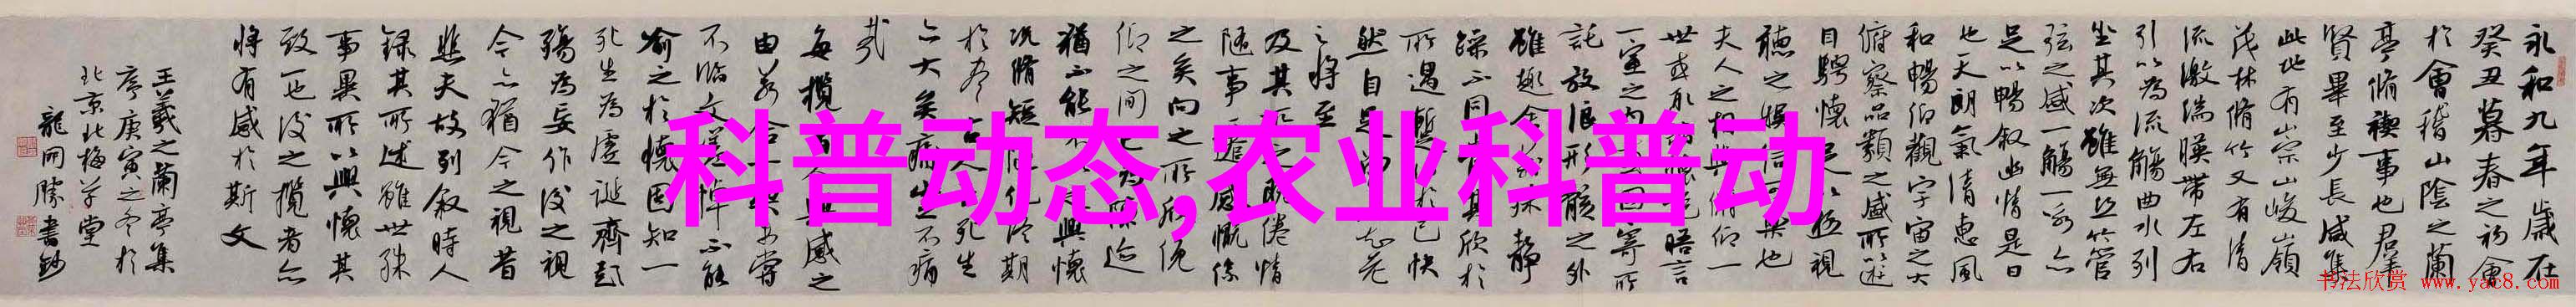 永和九年歲在
癸丑暮春之初會
於會稽山陰之蘭
亭脩禊事也群
賢畢至少長咸集
此地有崇山峻嶺
茂林脩竹又有清
流激湍暎帶左右
引以為流觴曲水列
坐其次雖無絲竹管
弦之盛一觴一詠亦
足以暢敘幽情是日
也天朗氣清惠風
和暢仰觀宇宙之大
俯察品類之盛所以遊
目騁懷足以極視
聽之娛信可樂也
夫人之相與俯仰一
世或取諸懷抱晤言
一室之內或因寄所
託放浪形骸之外
雖趣舍萬殊靜
躁不同當其欣於
所遇暫得於己快
然自足老
之將至
及其所之既倦情
隨事遷感慨係
之矣向之所欣俛
仰之間已為陳迹
猶不能不以之興懷
況脩短隨化終期
於盡古人云死生
亦大矣
哉
每攬昔人興感之
由若合一契未嘗
不臨文嗟悼不能
喻之於懷固知一
死生為虛誕齊彭
殤為妄作後之視
今亦猶今之視昔
悲夫故列敘時人
錄其所述雖世殊
事異所以興懷其
致一也後之攬者亦
將有感於斯文
王羲之蘭亭集
序庚寅之冬於
北京北梅草堂
龍開勝書鈔
科普动态,农业科普动
书法欣赏 www.yac8.com